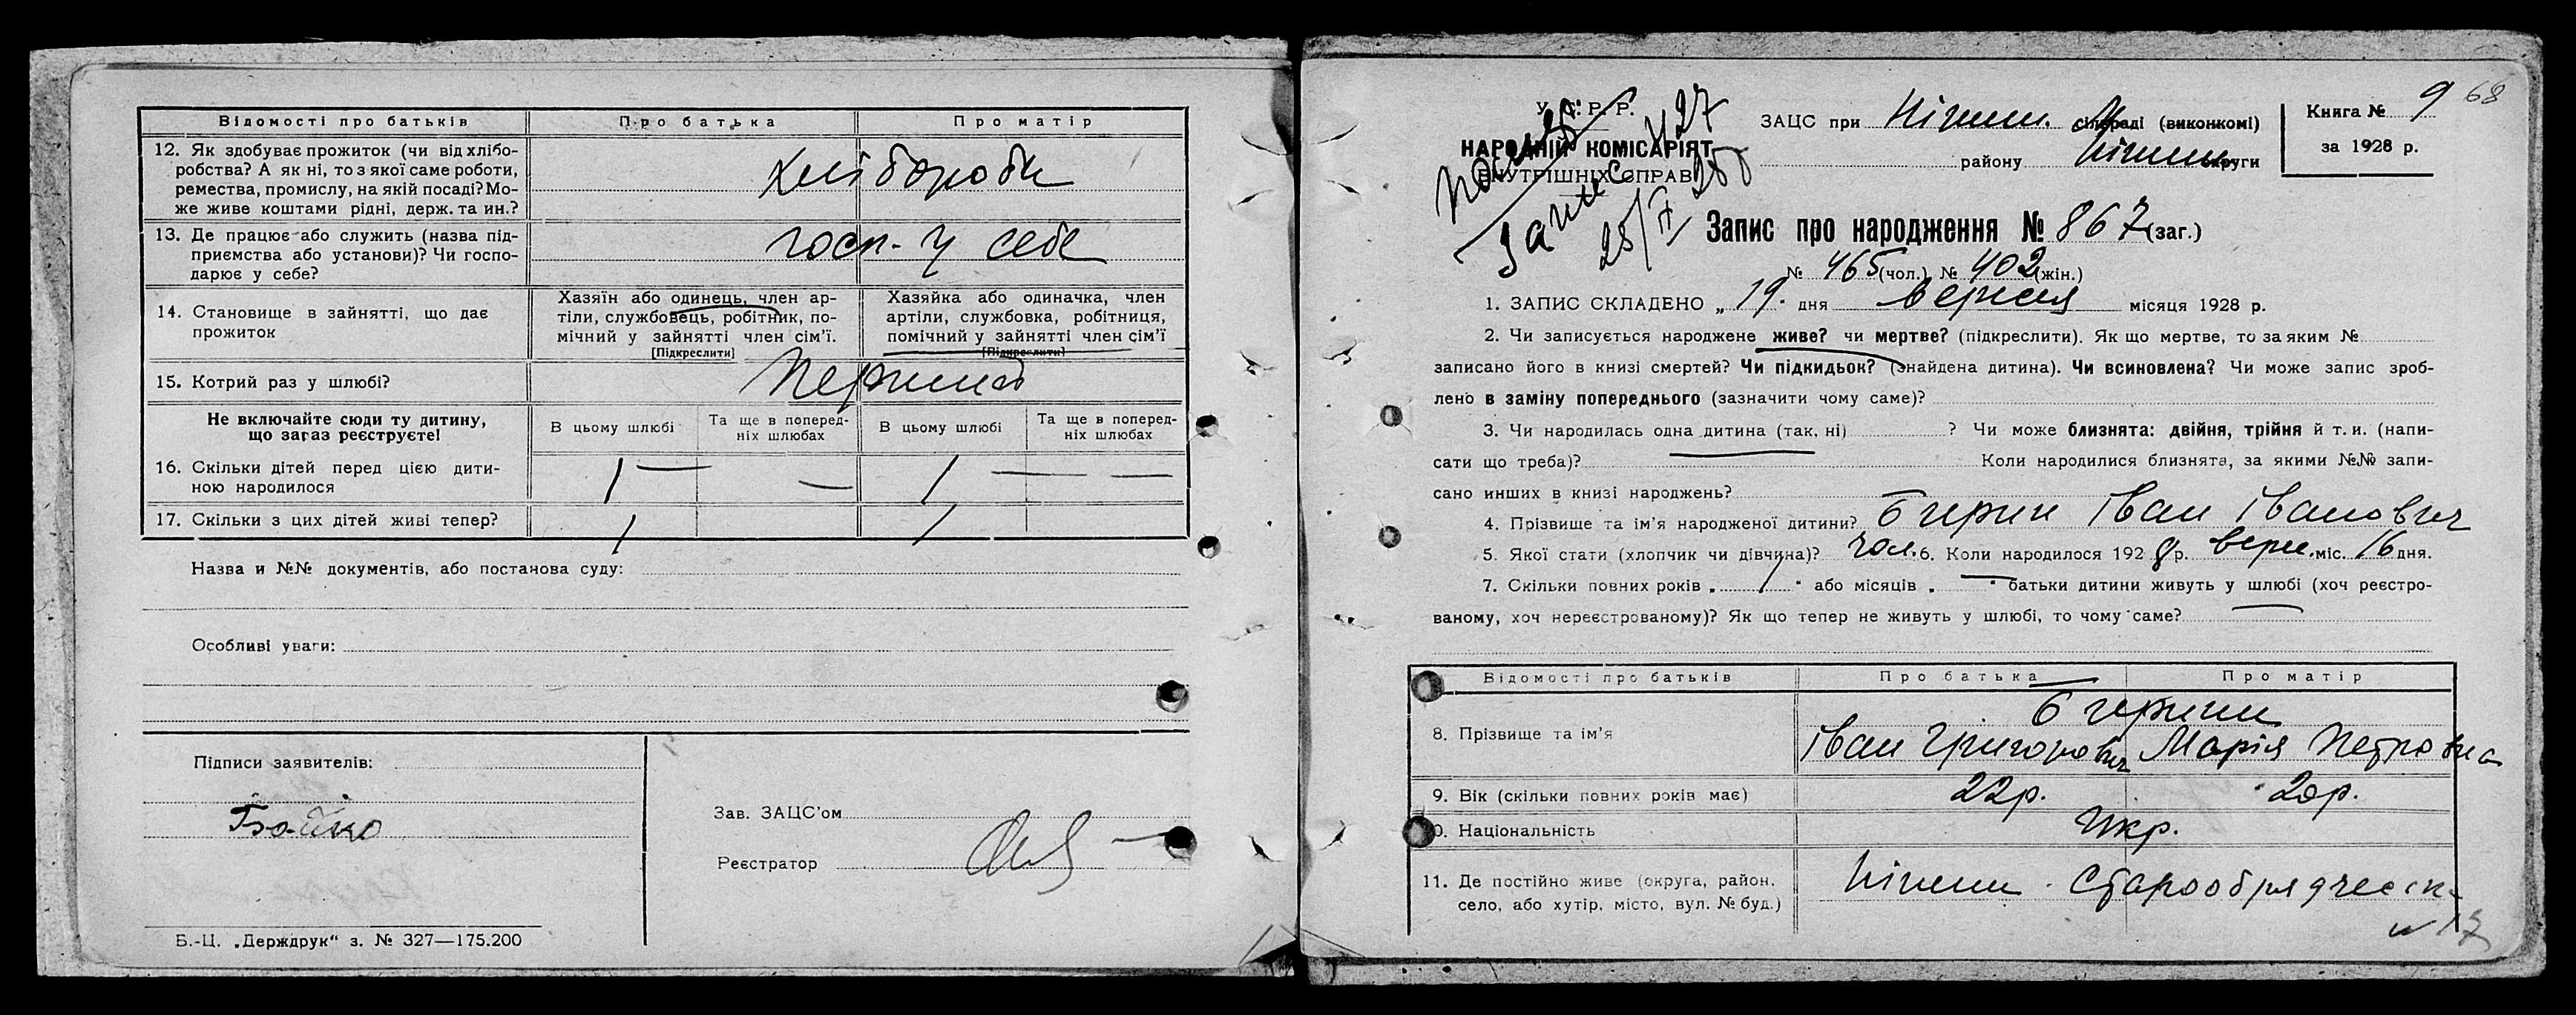 Відомости про батьків Про батька Про матір
12. Як здобуває прожиток (чи від хлібо-
робства? А як ні, то з якої саме роботи,
ремества, промислу, на якій посаді? Мо-
же живе коштами рідні, держ. та ин.?
хлібороби
13. Де працює або служить (назва під-
приємства або установи)? Чи госпо-
дарює у себе?
госп. у себе
14. Становище в зайнятті, що дає
прожиток
Хазяїн або одинець, член ар-
тіли, службовець, робітник, по-
мічний у зайнятті член сім'ї.
[Підкреслити]
Хазяйка або одиначка, член
артіли, службовка, робітниця,
помічний у зайнятті член сім'ї
[Підкреслити]
15. Котрий раз у шлюбі? Перший
Не включайте сюди ту дитину,
що зараз реєструєте!
В цьому шлюбі
Та ще в поперед-
ніх шлюбах
В цьому шлюбі
Та ще в поперед-
ніх шлюбах
16. Скільки дітей перед цією дити-
ною народилося
1 — — 1 — —
17. Скільки з цих дітей живі тепер? 1 1
Назва и №№ документів, або постанова суду:
Особливі уваги:
Підписи заявителів:
Зав. ЗАЦС'ом
Реєстратор
Б.-Ц. „Держдрук“ з. № 327—175.200
У.С.Р.Р.
НАРОДНІЙ КОМІСАРІЯТ
ВНУТРІШНІХ СПРАВ
ЗАЦС при Ніжин. сільраді (виконкомі)
району Ніжин округи
Книга № 9
за 1928 р.
68
Запис про народження № 867 (заг.)
№ 465 (чол.) № 402 (жін.)
1. ЗАПИС СКЛАДЕНО „19. дня вересня місяця 1928 р.
2. Чи записується народжене живе? чи мертве? (підкреслити). Як що мертве, то за яким №
записано його в книзі смертей? Чи підкидьок? (знайдена дитина). Чи всиновлена? Чи може запис зроб-
лено в заміну попереднього (зазначити чому саме)?
3. Чи народилась одна дитина (так, ні) ? Чи може близнята: двійня, трійня й т. и. (напи-
сати що треба)? Коли народилися близнята, за якими №№ запи-
сано инших в книзі народжень?
4. Прізвище та ім'я народженої дитини? Іван Іванович
5. Якої стати (хлопчик чи дівчина)? чол. 6. Коли народилося 1928 р. верес. міс. 16 дня.
7. Скільки повних років „ 1 “ або місяців „ — “ батьки дитини живуть у шлюбі (хоч реєстро-
ваному, хоч нереєстрованому)? Як що тепер не живуть у шлюбі, то чому саме?
Відомості про батьків Про батька Про матір
8. Прізвище та ім'я
Іван Григорович Марія Петровна
9. Вік (скільки повних років має) 22р. 20р.
10. Національність Укр.
11. Де постійно живе (округа, район,
село, або хутір, місто, вул. № буд.)
Ніжин. Старообрядческ.